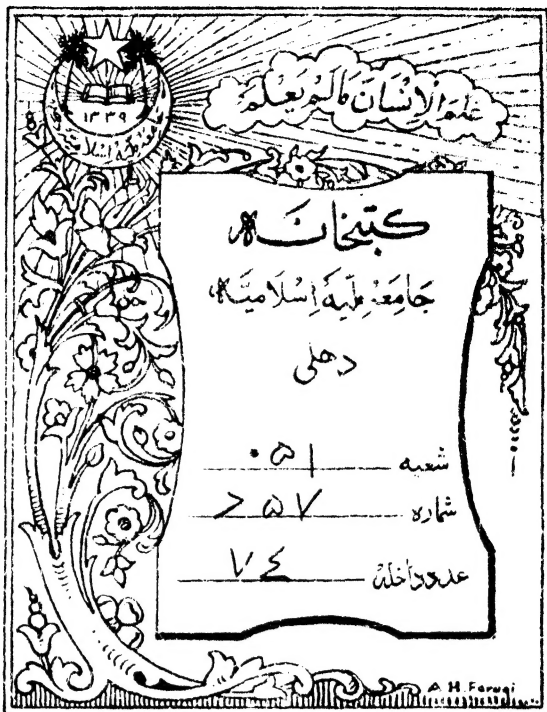 عَلَّمَ الْاِنْسَانَ مَالَمْ يَعْلَمْ
۱۳۳۹
کتبخانہ
جامعہ ملیہ اسلامیہ،
دھلی
شعبہ ۰۵۱
شمارہ ۵۷
عدد داخلہ ۷٤
A.H. Faruqi